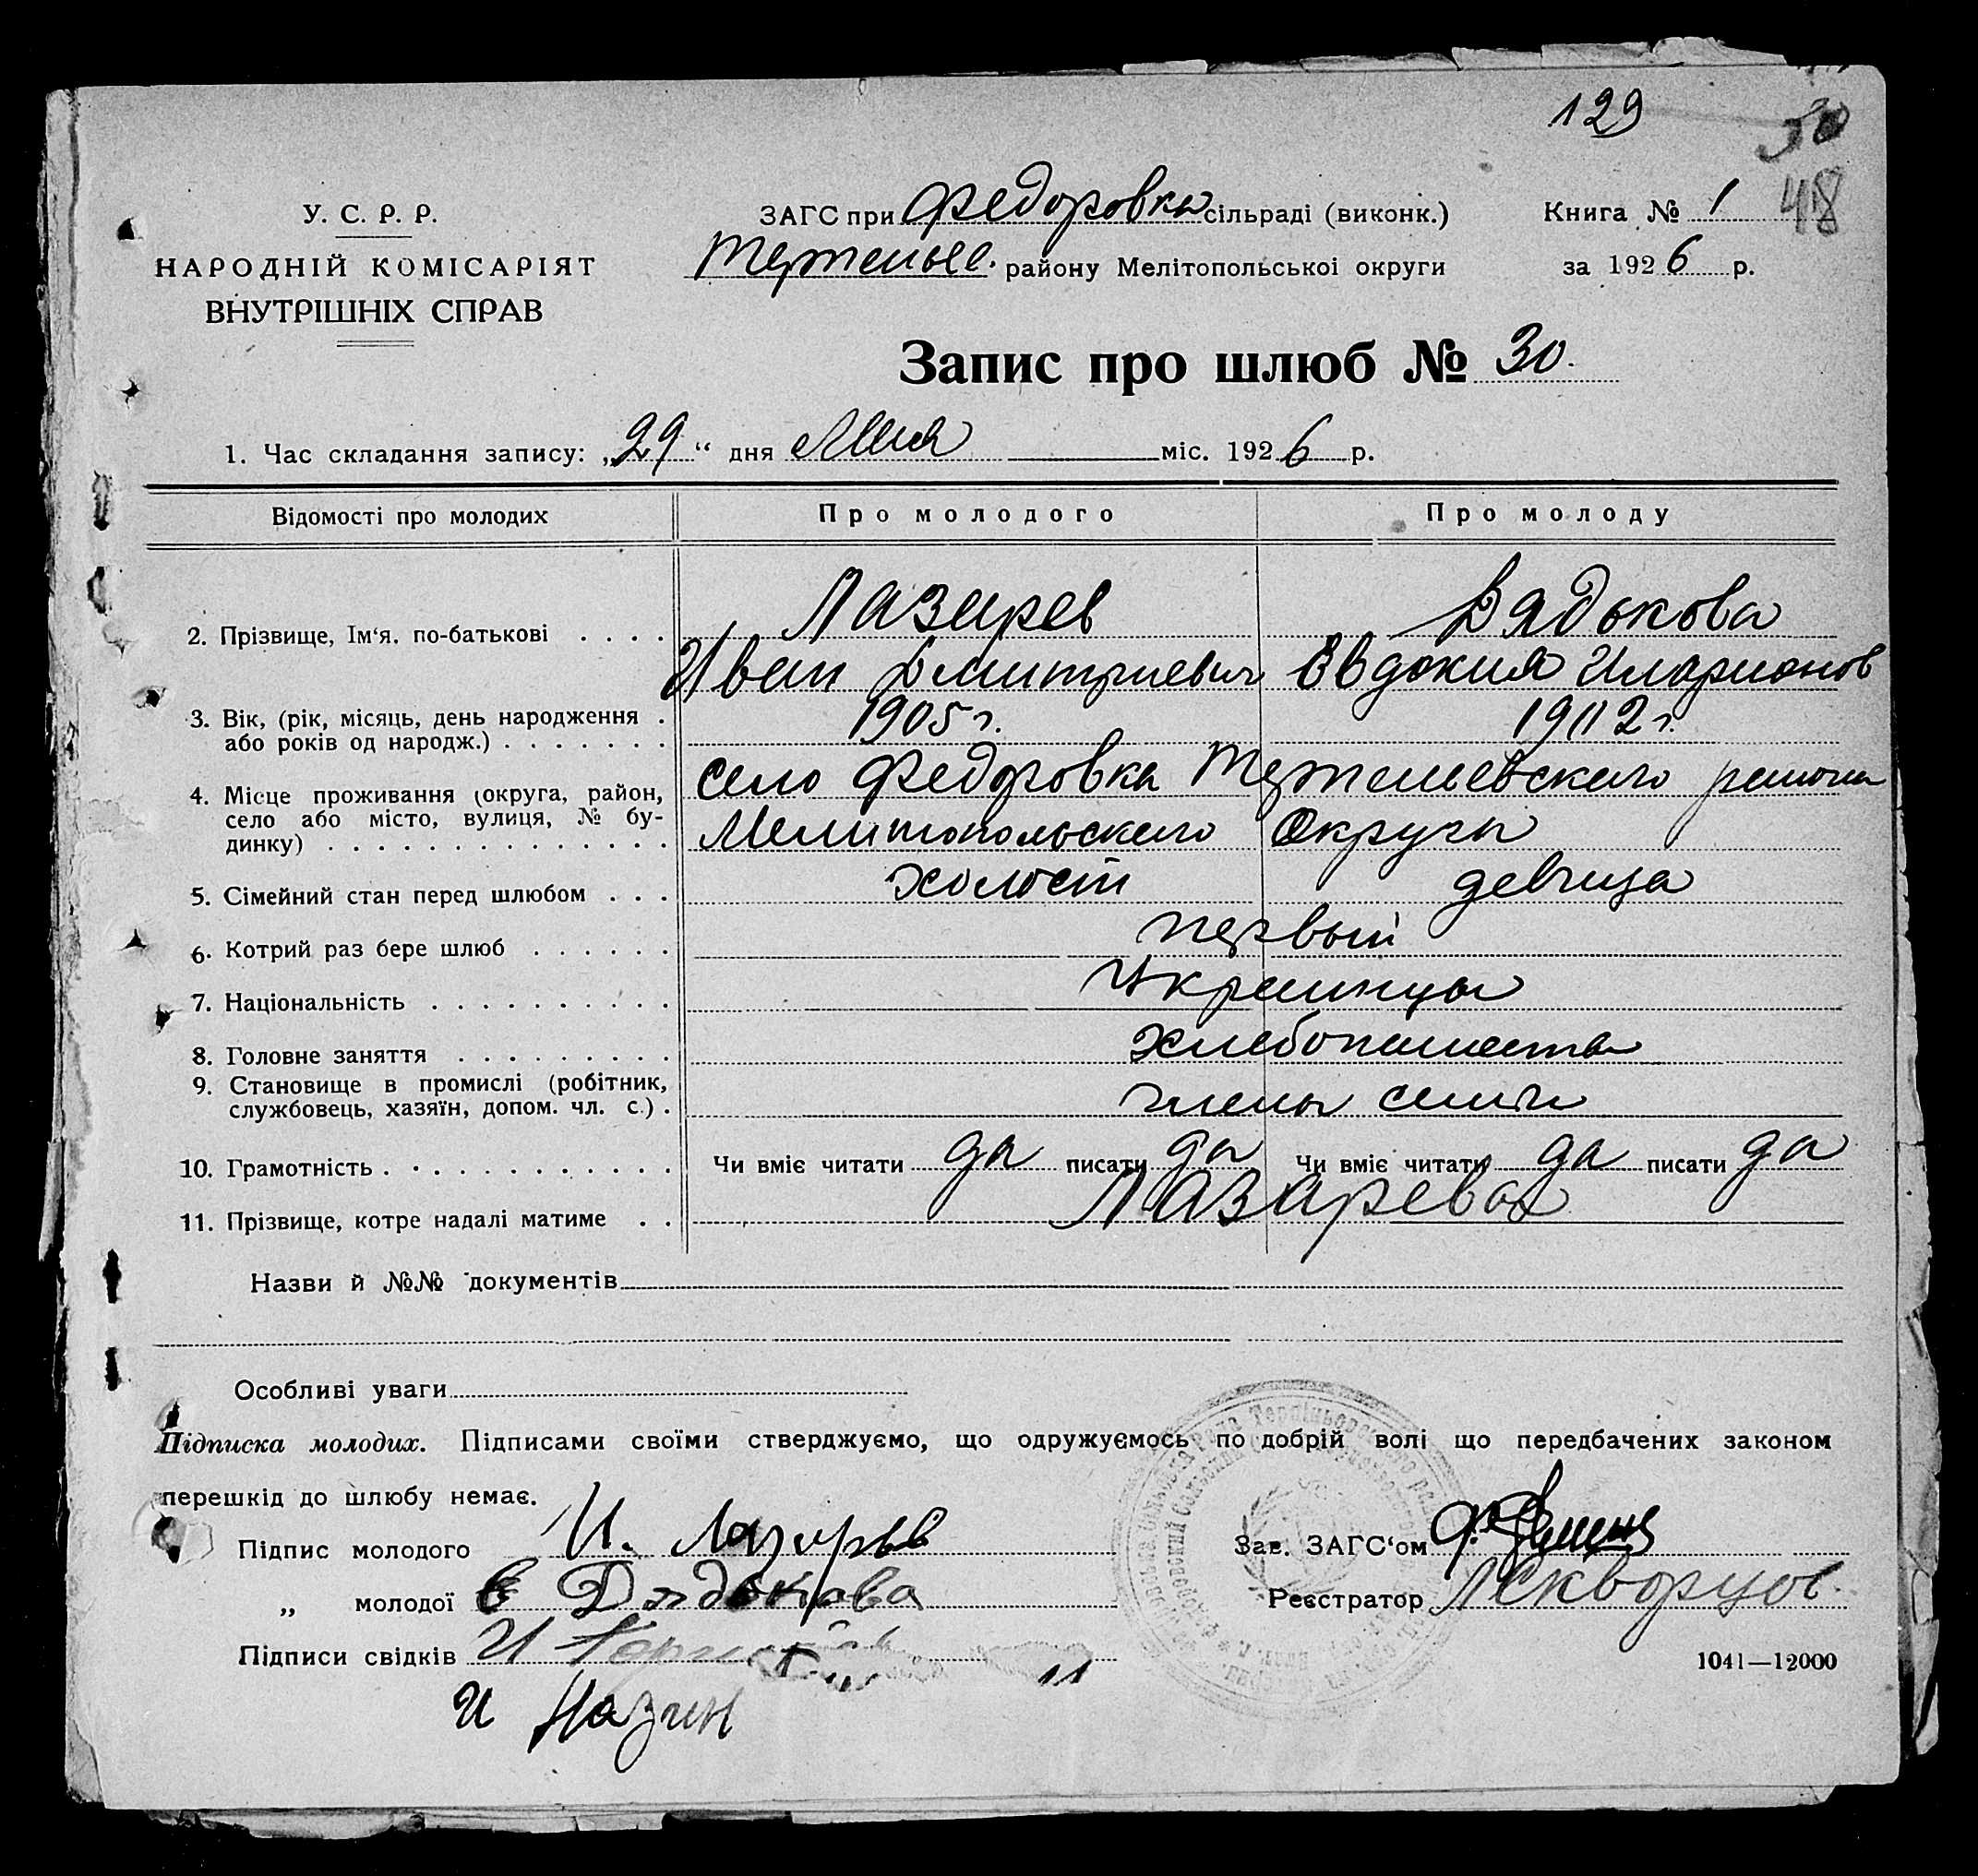 129
30
48
У. С. Р. Р.
НАРОДНІЙ КОМІСАРІЯТ
ВНУТРІШНІХ СПРАВ
ЗАГС при Федоровка сільраді (виконк.)
району Мелітопольської округи
Книга № 1
за 1926 р.
Запис про шлюб № 30.
1. Час складання запису: „29“ дня Мая міс. 1926 р.
Відомості про молодих Про молодого Про молоду
2. Прізвище, Ім‘я. по-батькові . . . . Лазарев Дядькова
Иван Дмитриевич Евдокия Иларионов
3. Вік, (рік, місяць, день народження .
або років од народж.) . . . . . . . 1905 г. 1902 г.
4. Місце проживання (округа, район, село Федоровка района
село або місто, вулиця, № бу-
динку) . . . . . . . . . . . . . . Мелитопольского Округи
5. Сімейний стан перед шлюбом . . . холост девица
6. Котрий раз бере шлюб . . . . . . первый
7. Національність . . . . . . . . . . Украинцы
8. Головне заняття . . . . . . . . . хлебопашества
9. Становище в промислі (робітник,
службовець, хазяїн, допом. чл. с.) . члены семьи
10. Грамотність . . . . . . . . . . . . Чи вміє читати да писати да Чи вміє читати да писати да
11. Прізвище, котре надалі матиме . . Лазарева
Назви й №№ документів
Особливі уваги
Підписка молодих. Підписами своїми стверджуємо, що одружуємось по добрій волі що передбачених законом
перешкід до шлюбу немає.
Підпис молодого И. Лазарьв
„ молодої Е Дядькова
Підписи свідків И
И Назин
Зав. ЗАГС‘ом
Реєстратор Лскворцов
1041—12000